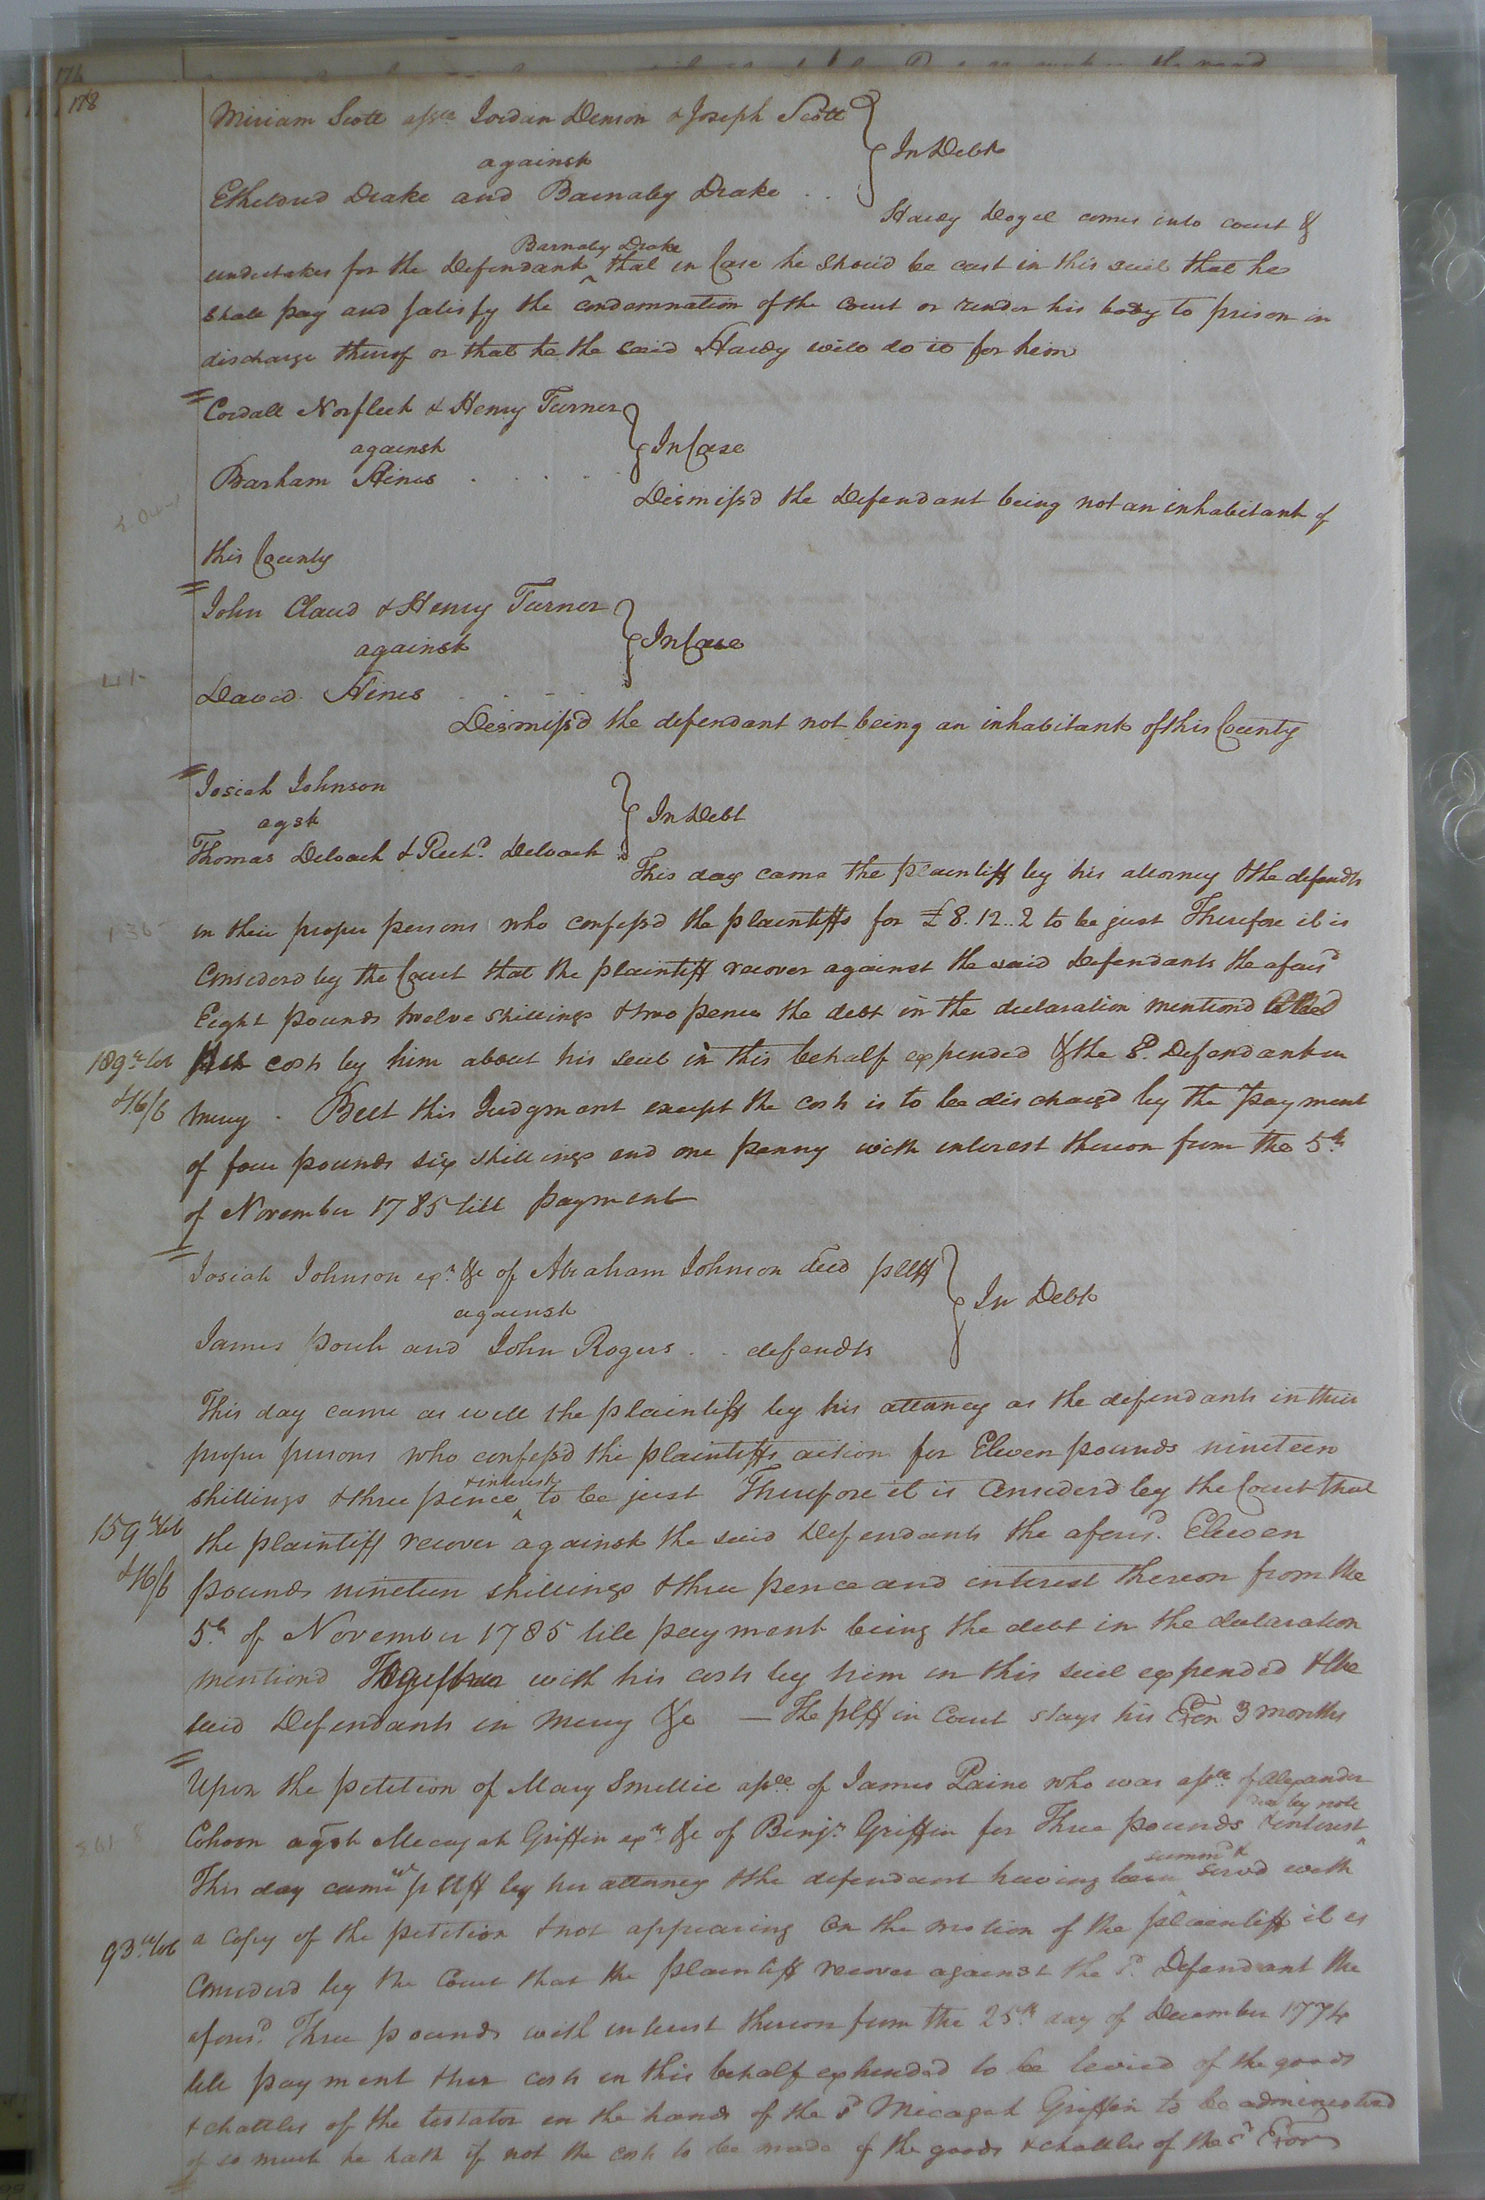 176
178
Miriam Scott assee Jordan Denson & Joseph Scott
against
In Debt
Etheldred Drake and Barnaby Drake . .
Hardy Doyel comes into court &
Barnaby Drake
undertakes for the Defendant ^ that in Case he should be cast in this suit that he
shall pay and satisfy the condemnation of the court or render his body to prison in
discharge thereof or that he the said Hardy will do it for him
Cordall Norfleet & Henry Turner
against
In Case
Barham Hines . . . .
Dismiss'd the Defendant being not an inhabitant of
this County
John Claud & Henry Turner
against
In Case
David Hines . . . .
Dismiss'd the defendant not being an inhabitant of this County
Josiah Johnson
agst
In Debt
Thomas Deloach & Richd. Deloach
This day came the plaintiff by his attorney & the defendts
in their proper persons who confess'd the plaintiffs for £8.12..2 to be just Therefore it is
Considerd by the Court that the plaintiff recover against the said Defendants the afsaid
Eight pounds twelve shillings & two pence the debt in the declaration mentiond
costs by him about his suit in this behalf expended & the sd. Defendant in
mercy . But this Judgment except the costs is to be discharg'd by the payment
of four pounds six shillings and one penny with interest thereon from the 5th
of November 1785 till payment
Josiah Johnson exr. &c of Abraham Johnson decd pltff
against
In Debt
James and John Rogers . . defendts
This day came as well the plaintiff by his attorney as the defendants in their
proper persons who confess'd the plaintiffs action for Eleven pounds nineteen
& interest
shillings & three pence ^ to be just Therefore it is Considerd by the Court that
the plaintiff recover against the said Defendants the afores'd. Eleven
&16/6
pounds nineteen shillings & three pence and interest thereon from the
5th of November 1785 till payment being the debt in the declaration
mentiond with his costs by him in this suit expended & the
said Defendants in mercy &c — The pltff in Court stays his Exon 3 months
Upon the petition of Mary Smellie assee of James Paine who was assee of Alexander
due by note
Cohoon agst Mecajah Griffin exr &c of Benja. Griffin for Three pounds & interest
summd &
This day came ye pltff by her attorney & the defendant having been servd with
a Copy of the petition & not appearing On the motion of the plaintiff it is
Considerd by the Court that the plaintiff recover against the sd. Defendant the
afores'd. Three pounds with interest thereon from the 25th day of December 1774
till payment & her costs in this behalf expended to be levied of the goods
& chattles of the testator in the hands of the sd Micagah Griffin to be administred
if so much he hath if not the costs to be made of the goods & chattles of the sd Exor